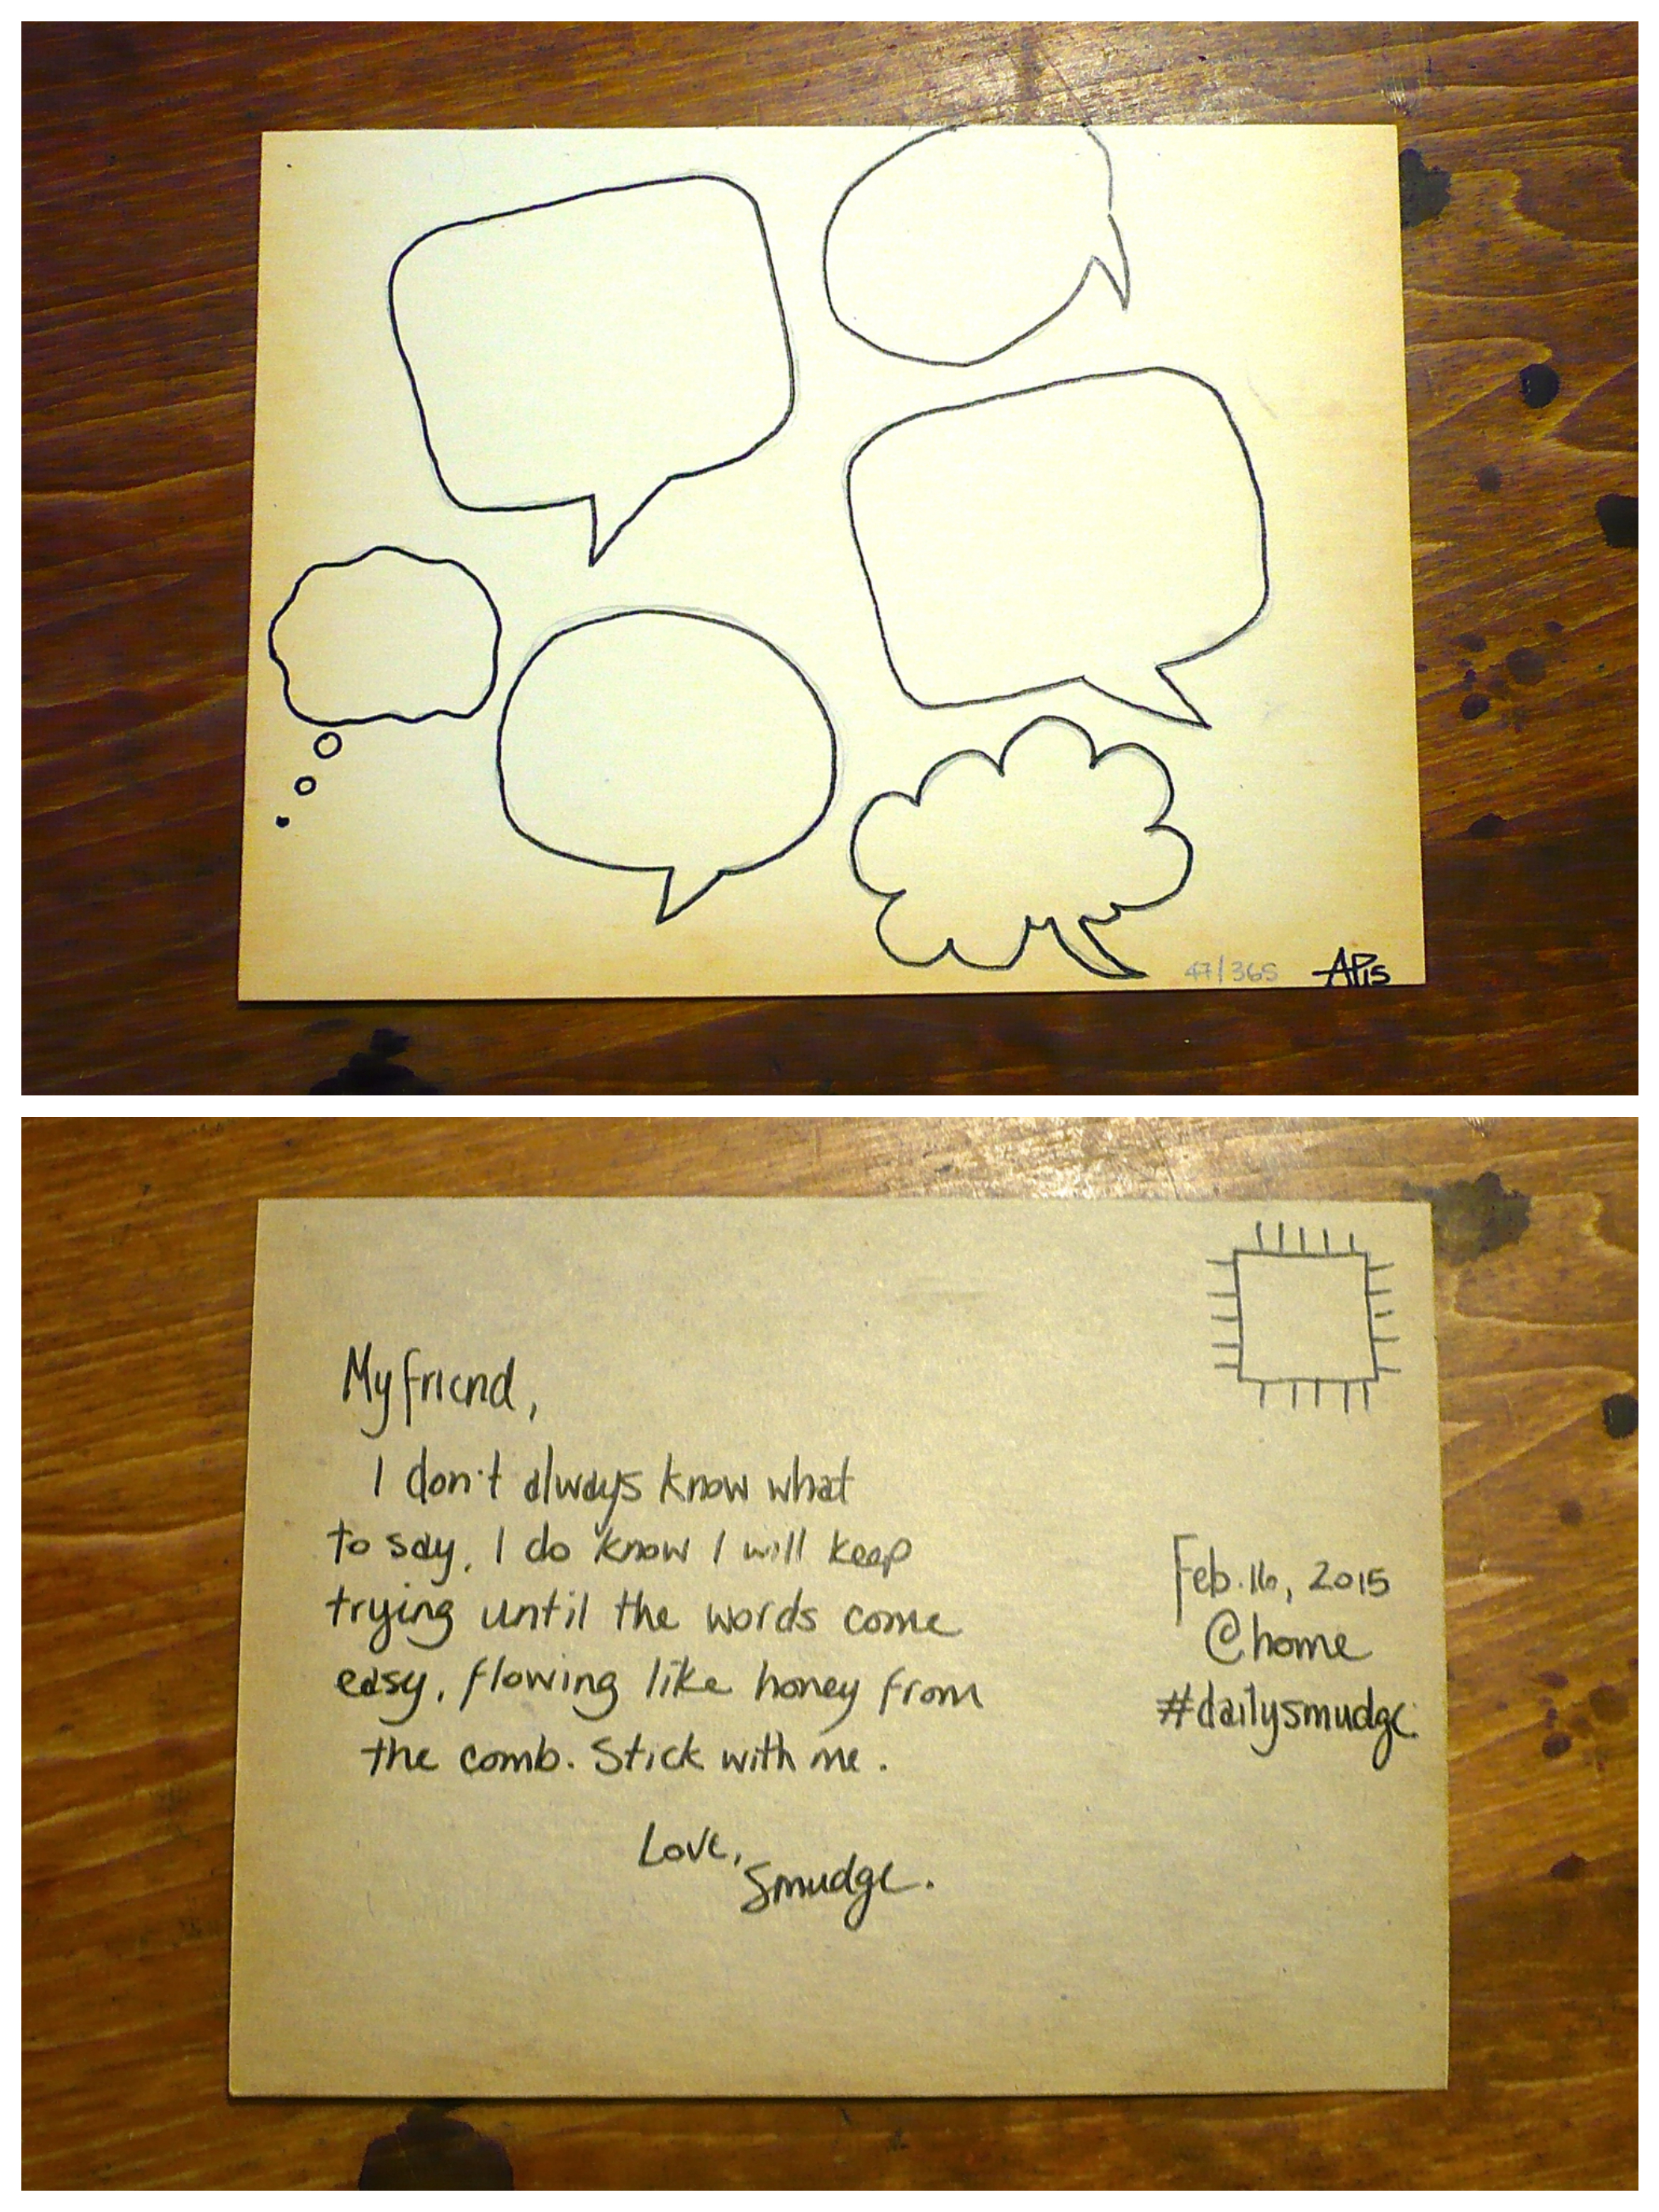 47/365 APis
My friend,
I don't always know what
to say. I do know I will keep
trying until the words come
easy, flowing like honey from
the comb. Stick with me.
Love,
Smudge.
Feb. 16, 2015
@home
#dailysmudge